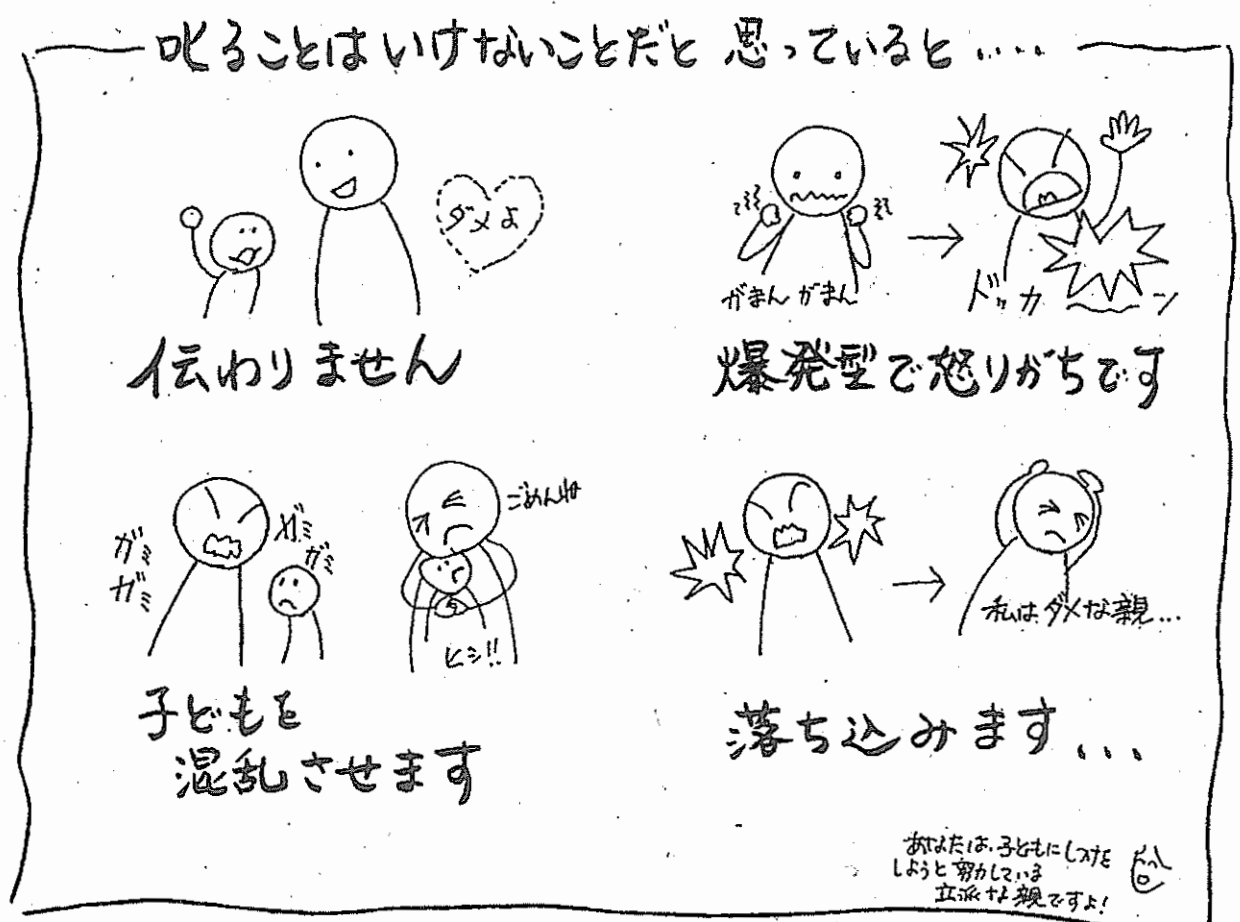 叱ることはいけないことだと思っていると....
ダメよ
伝わりません
がまん がまん
ドッカ〜ン
爆発型で怒りがちです
ガミ
ガミ
ガミ
ガミ
ごめんね
ヒシ!!
子どもを
混乱させます
私はダメな親...
落ち込みます...
あなたは、子どもにしつけを
しようと努力している
立派な親ですよ!